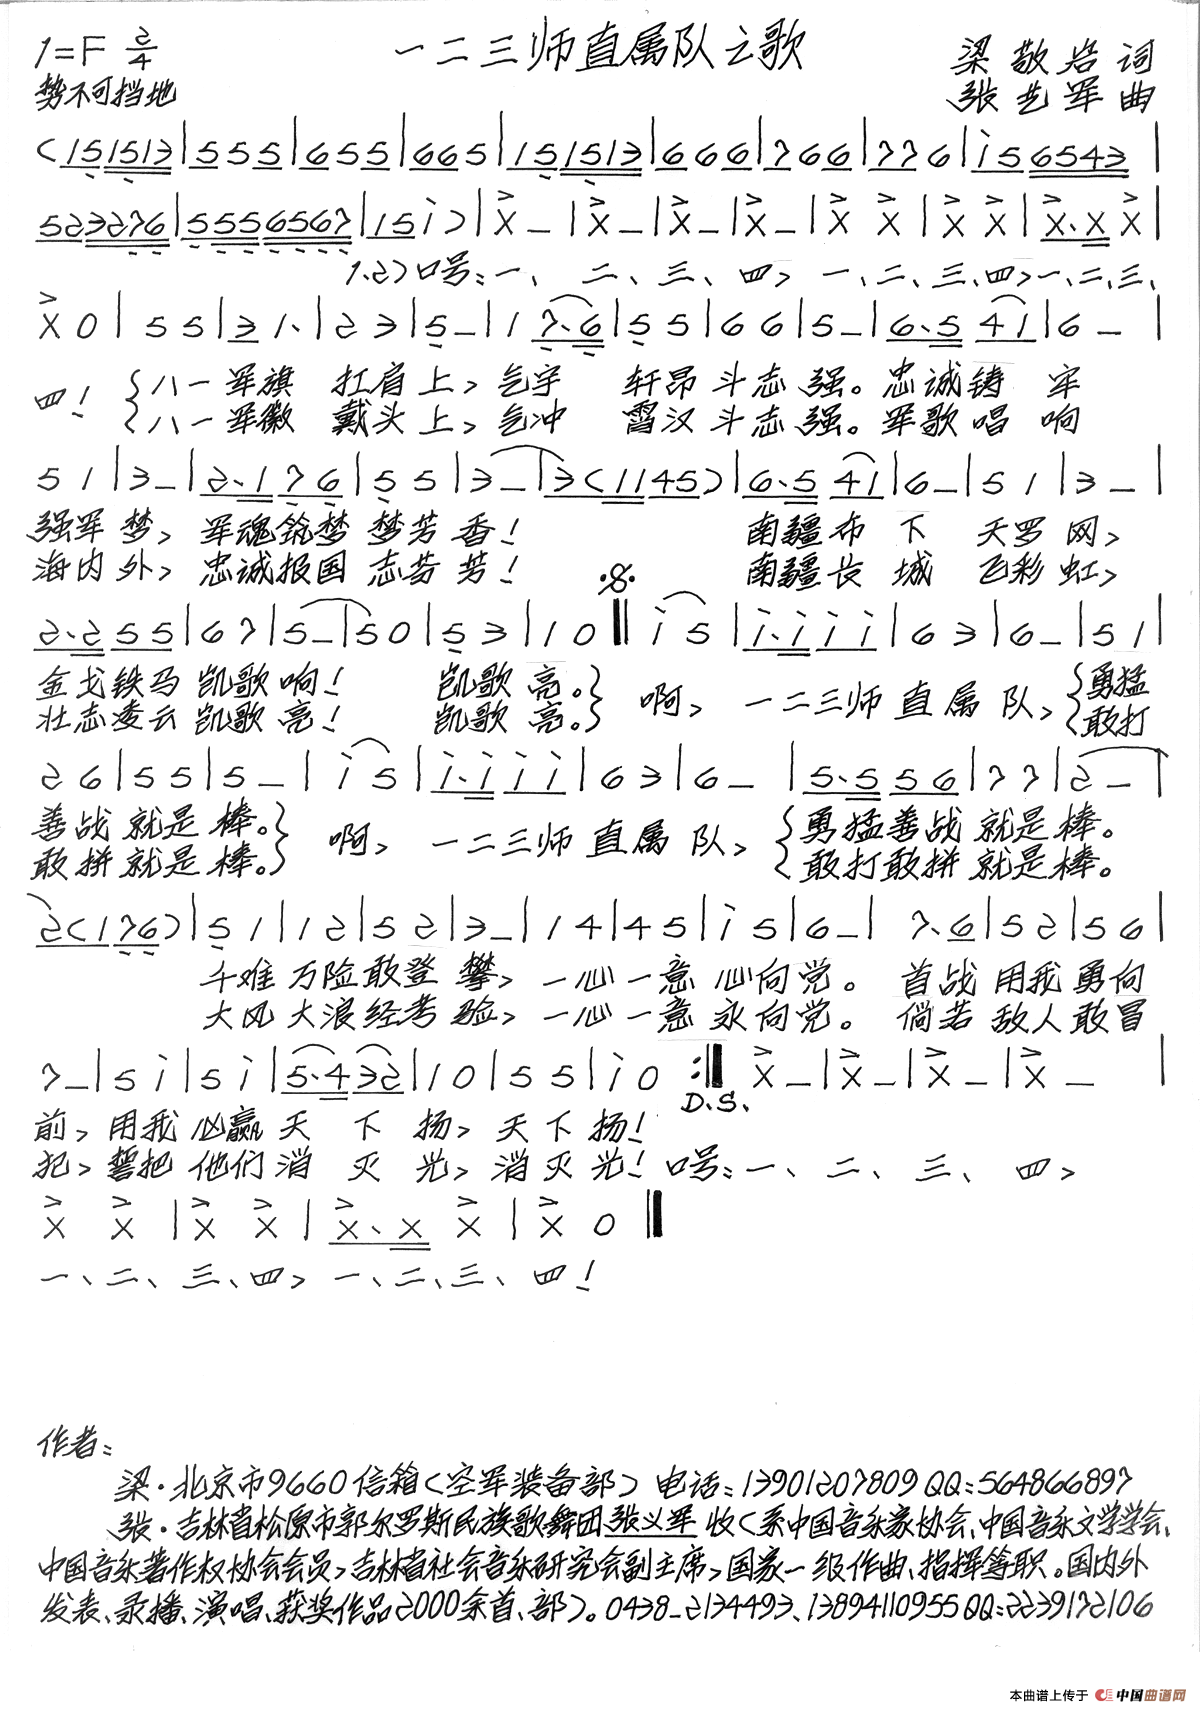 1=F 2/4 一二三师直属队之歌 梁敬岩词
势不可挡地 张艺军曲
(1 5 1 5 1 3 | 5 5 5 | 6 5 5 | 6 6 5 | 1 5 1 5 1 3 | 6 6 6 | 7 6 6 | 7 7 6 | i 5 6 5 4 3 |
5 2 3 2 7 6 | 5 5 5 6 5 6 7 | 1 5 i ) | X – | X – | X – | X – | X X | X X | X. X X |
1.2)口号:一、 二、三、四, 一、二、三、四,一、二、三、
X 0 | 5 5 | 3 1. | 2 3 | 5 – | 1 7. 6 | 5 5 | 6 6 | 5 – | 6. 5 4 1 | 6 – |
四! 八一军旗 扛肩上,气宇 轩昂斗志强。忠诚铸 牢
八一军徽 戴头上,气冲 霄汉斗志强。军歌唱 响
5 1 | 3 – | 2. 1 7 6 | 5 5 | 3 – | 3 (1 1 4 5) | 6. 5 4 1 | 6 – | 5 1 | 3 – |
强军梦,军魂筑梦 梦芳香! 南疆布 下 天罗网,
海内外,忠诚报国 志芬芳! 南疆长 城 飞彩虹,
2. 2 5 5 | 6 7 | 5 – | 5 0 | 5 3 | 1 0 ‖ i 5 | i. i i i | 6 3 | 6 – | 5 1 |
金戈铁马 凯歌响! 凯歌亮。 啊, 一二三师直属队, 勇猛
壮志凌云 凯歌亮! 凯歌亮。 敢打
2 6 | 5 5 | 5 – | i 5 | i. i i i | 6 3 | 6 – | 5. 5 5 6 | 7 7 | 2 – |
善战就是棒。 啊, 一二三师直属队, 勇猛善战 就是棒。
敢拼就是棒。 敢打敢拼 就是棒。
2 (1 7 6) | 5 1 | 1 2 | 5 2 | 3 – | 1 4 | 4 5 | i 5 | 6 – | 7. 6 | 5 2 | 5 6 |
千难万险敢登攀, 一心一意心向党。 首战用我勇向
大风大浪经考验, 一心一意永向党。 倘若敌人敢冒
7 – | 5 i | 5 i | 5. 4 3 2 | 1 0 | 5 5 | i 0 :‖ X – | X – | X – | X – |
D.S.
前,用我必赢天 下 扬,天下扬!
犯,誓把他们消 灭 光,消灭光! 口号:一、二、三、四,
X X | X X | X. X X | X 0 ‖
一、二、三、四, 一、二、三、四!
作者:
梁·北京市9660信箱(空军装备部) 电话:13901207809 QQ:564866897
张·吉林省松原市郭尔罗斯民族歌舞团张义军 收(系中国音乐家协会、中国音乐文学学会、
中国音乐著作权协会会员,吉林省社会音乐研究会副主席,国家一级作曲、指挥等职。国内外
发表、录播、演唱、获奖作品2000余首、部)。0438–2134493、13894110955 QQ:2239172106
本曲谱上传于 中国曲谱网